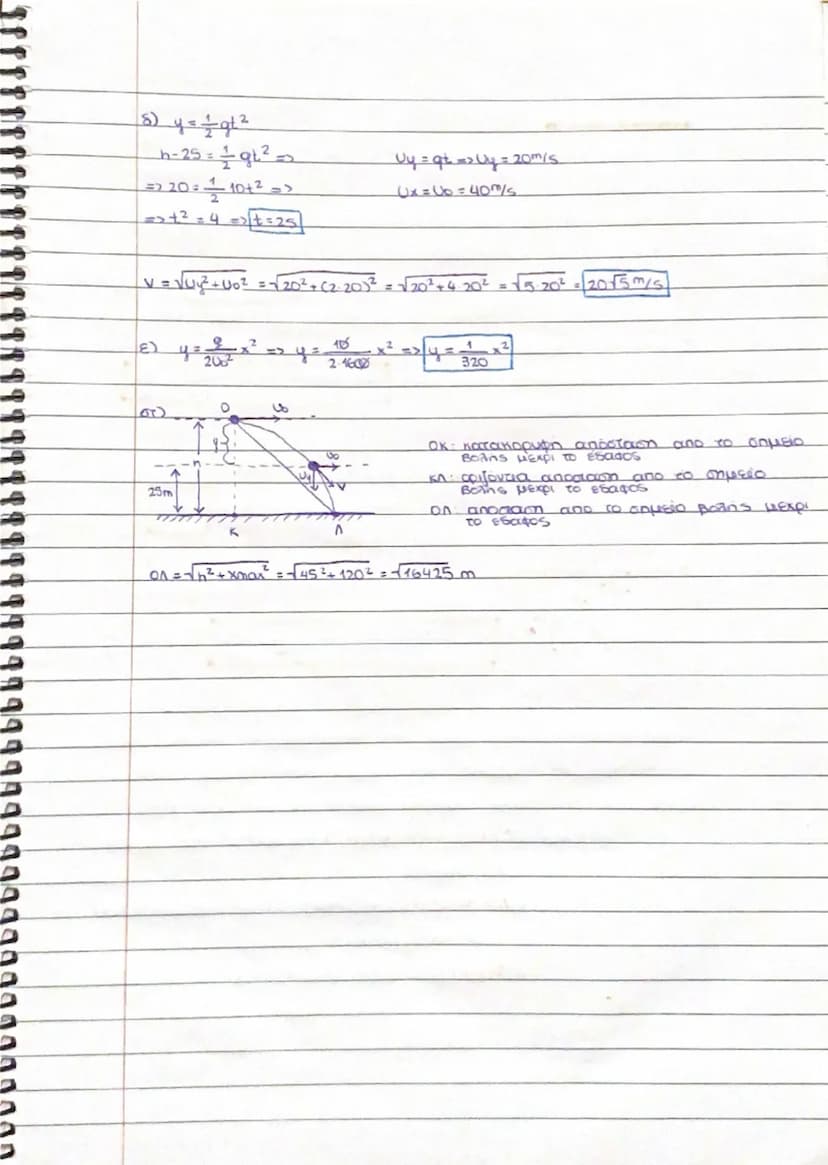 δ) y = 1/2 gt²
h-25 = 1/2 gt² =>
Uy = gt => Uy = 20m/s
=> 20 = 1/2 10t² =>
Ux = U₀ = 40m/s
=> t² = 4 => t = 2s
V = √Uy² + U₀² = √20² + (2·20)² = √20² + 4·20² = √5·20² = 20√5 m/s
ε) y = g/2U₀² x² => y = 10/2·1600 x² => y = 1/320 x²
στ)
O
U₀
y
h
25m
U₀
Uy
V
K
Λ
ΟΚ: κατακορυφη αποσταση απο το σημειο
βολης μεχρι το εδαφος
ΚΛ: οριζοντια αποσταση απο το σημειο
βολης μεχρι το εδαφος
ΟΛ: αποσταση απο το σημειο βολης μεχρι
το εδαφος
ΟΛ = √h² + xmax² = √45² + 120² = √16425 m